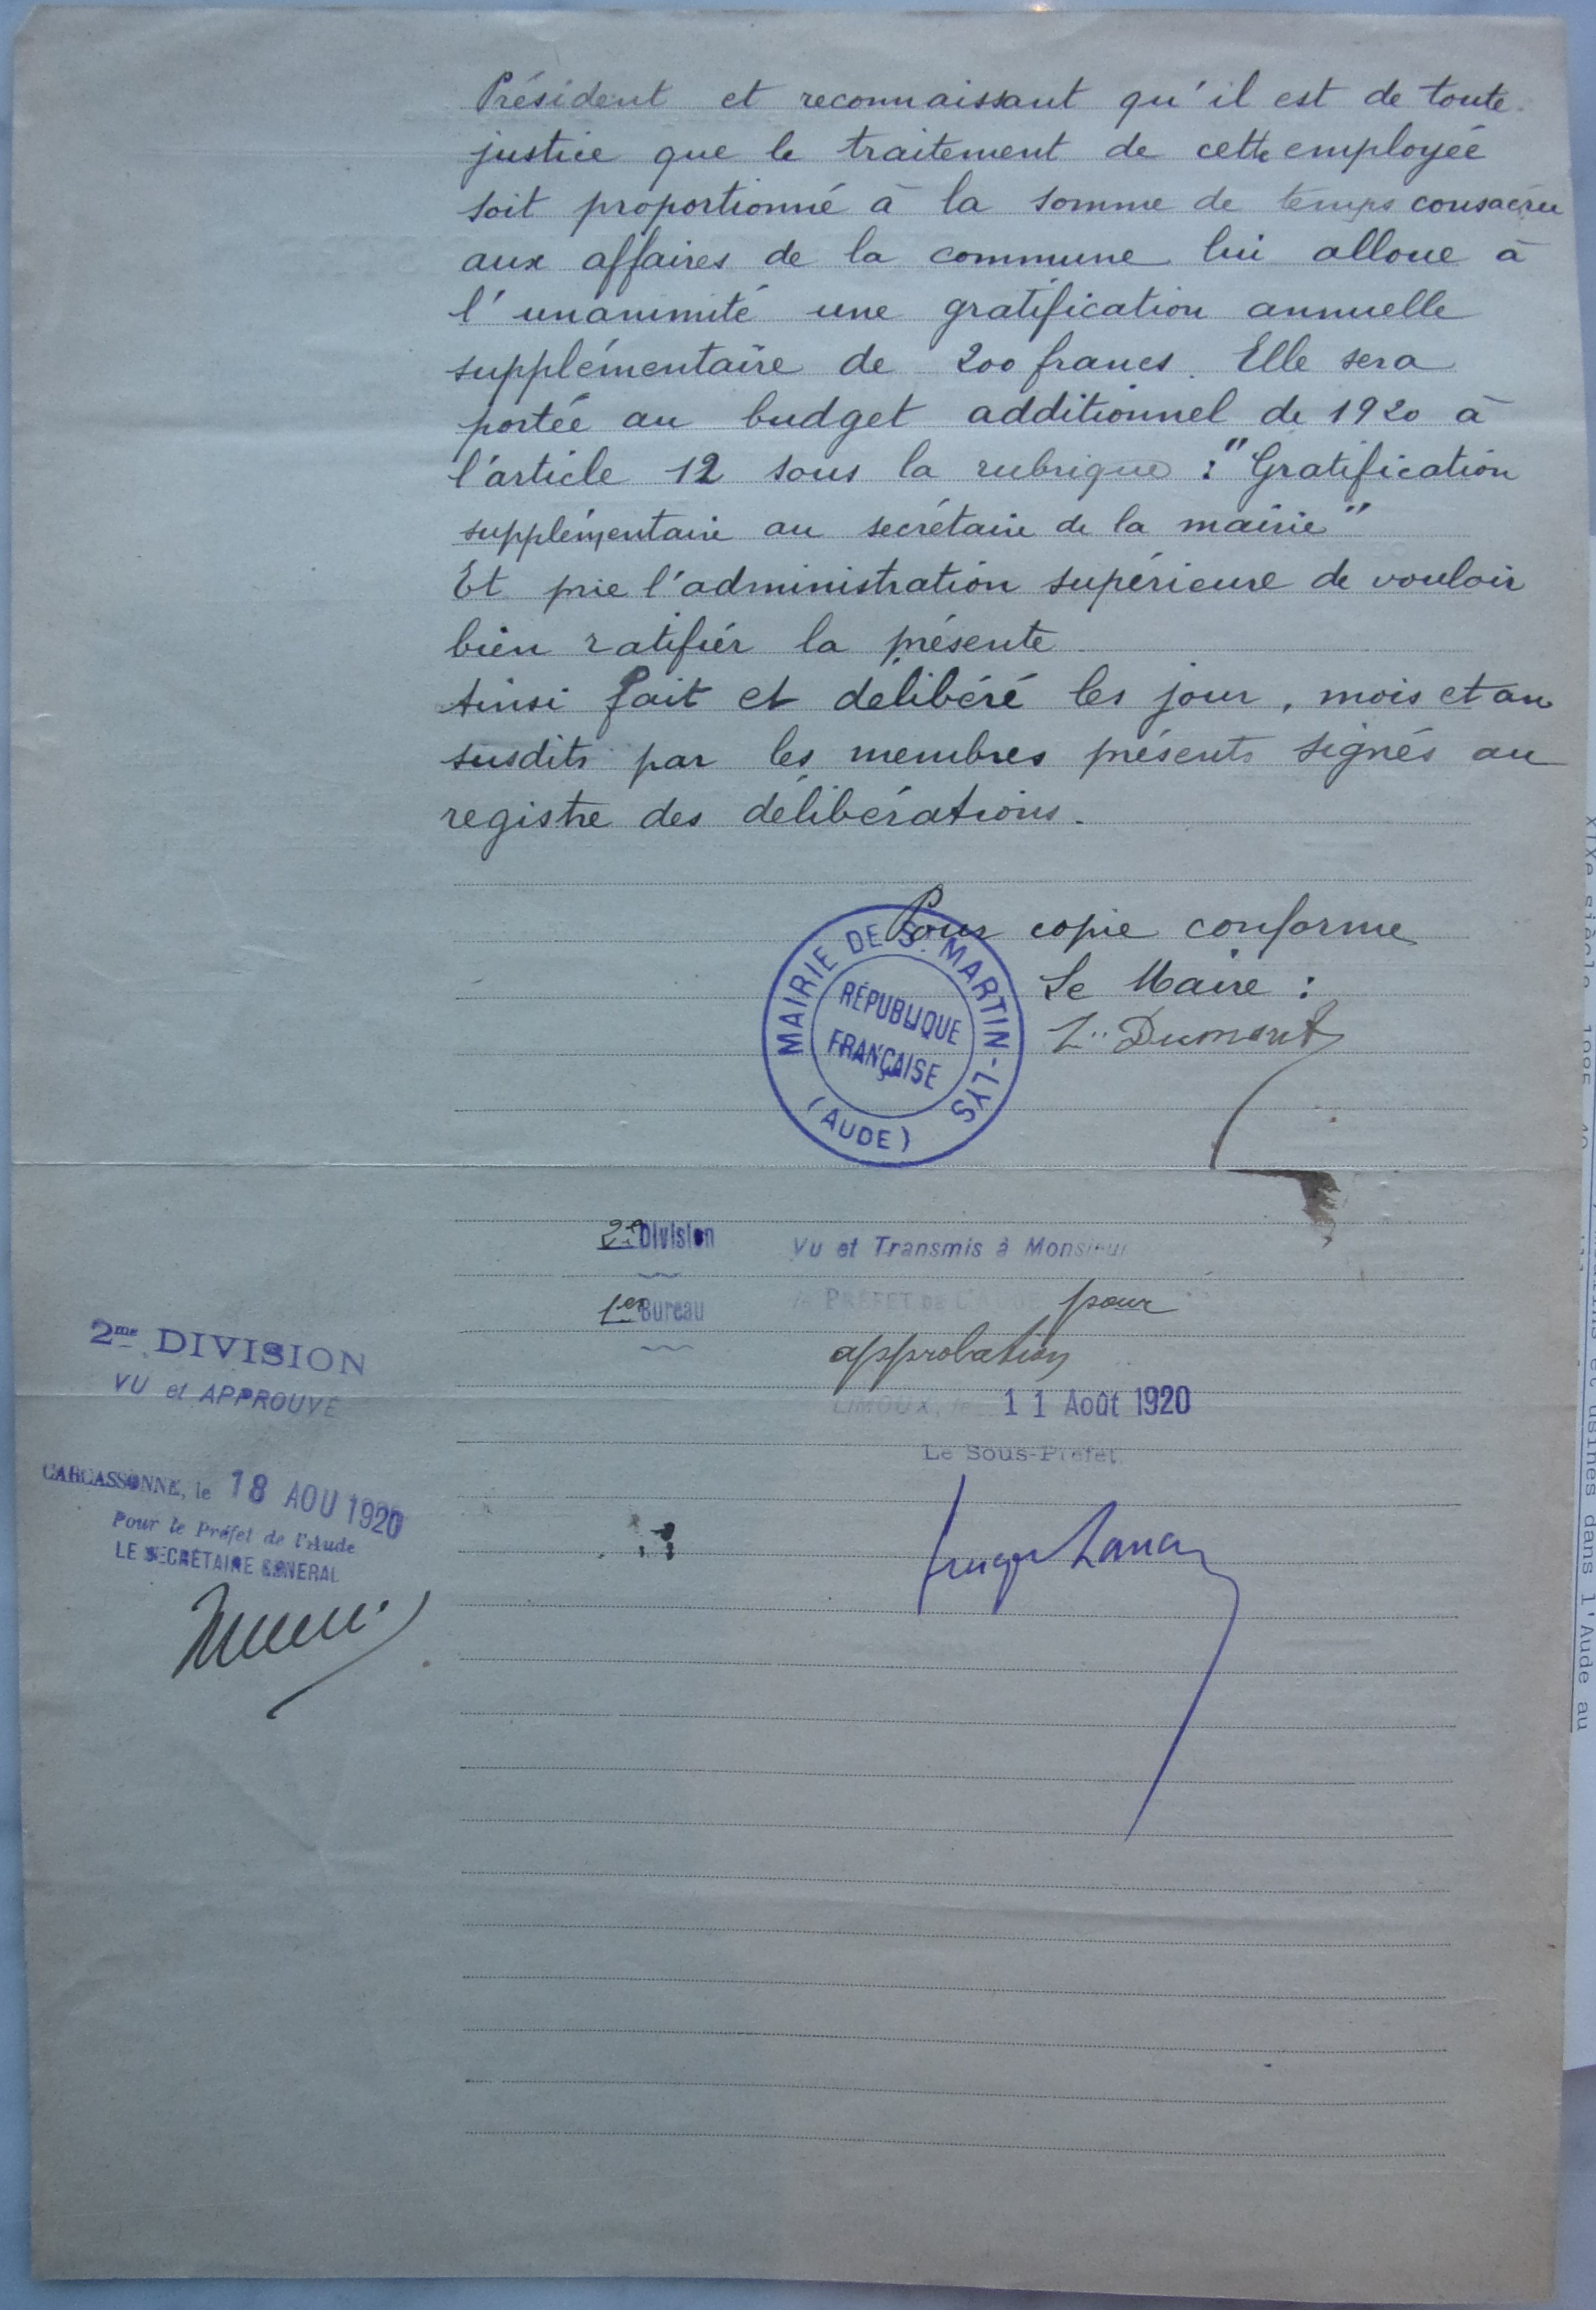 Président et reconnaissant qu'il est de toute
justice que le traitement de cette employée
soit proportionné à la somme de temps consacrée
aux affaires de la commune lui alloue à
l'unanimité une gratification annuelle
supplémentaire de 200 francs. Elle sera
portée au budget additionnel de 1920 à
l'article 12 sous la rubrique : "Gratification
supplémentaire au secrétaire de la mairie"
Et prie l'administration supérieure de vouloir
bien ratifier la présente
Ainsi fait et délibéré les jour, mois et an
susdits par les membres présents signés au
registre des délibérations.
Pour copie conforme
Le Maire :
Dumont
MAIRIE DE St. MARTIN-LYS
RÉPUBLIQUE
FRANÇAISE
(AUDE)
2e Division
Vu et Transmis à Monsieur
1er Bureau
le PRÉFET DE L'AUDE pour
approbation
LIMOUX, le 11 Août 1920
Le Sous-Préfet
2me DIVISION
VU et APPROUVÉ
CARCASSONNE, le 18 AOU 1920
Pour le Préfet de l'Aude
LE SECRÉTAIRE GÉNÉRAL
usines dans l'Aude au